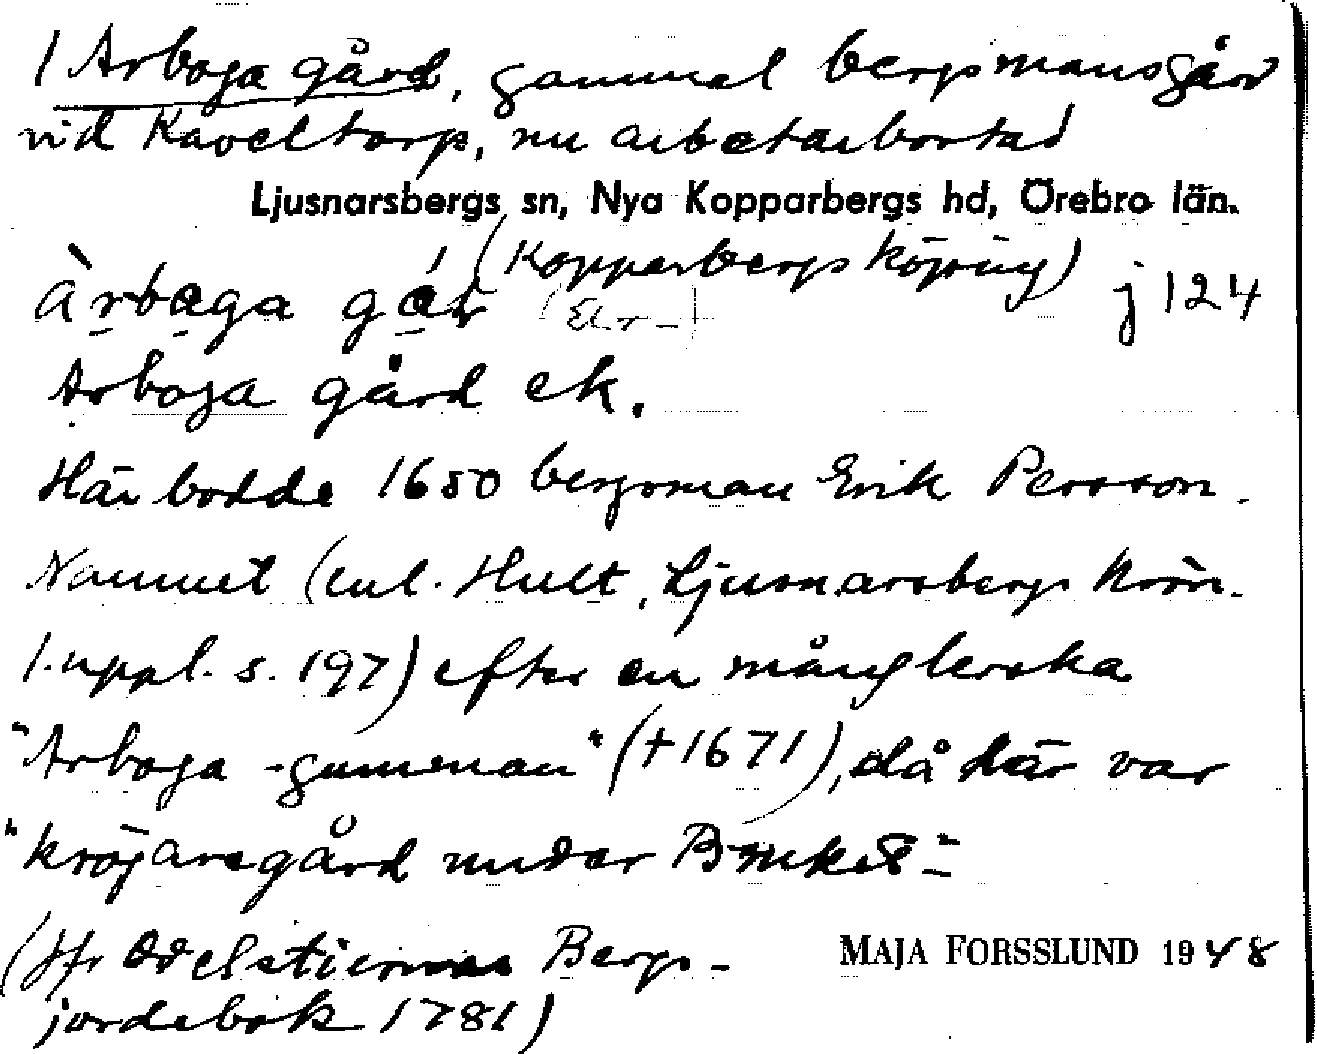 1 Arboga gård, gammal bergsmansgård
vid Kaveltorp, nu arbetarbostad
Ljusnarsbergs sn, Nya Kopparbergs hd, Örebro län.
(Kopparbergs köping)
àrbaga gǻr j 124
Arboga gård ek.
Här bodde 1650 bergsman Erik Persson.
Namnet (enl. Hult, Ljusnarsbergs krön.
1. uppl. s. 197) efter en månglerska
"Arboga-gumman" (†1671), då här var
"kröjaregård under Bruket"
(Jfr Odelstiernas Bergs-
jordebok 1781)
MAJA FORSSLUND 1948